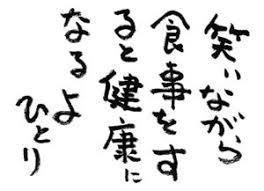 笑いながら
食事をす
ると健康に
なるよ
ひとり